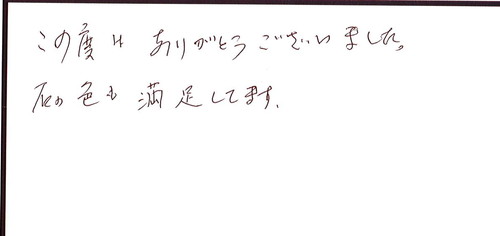 この度は ありがとうございました。
石の色も 満足してます。